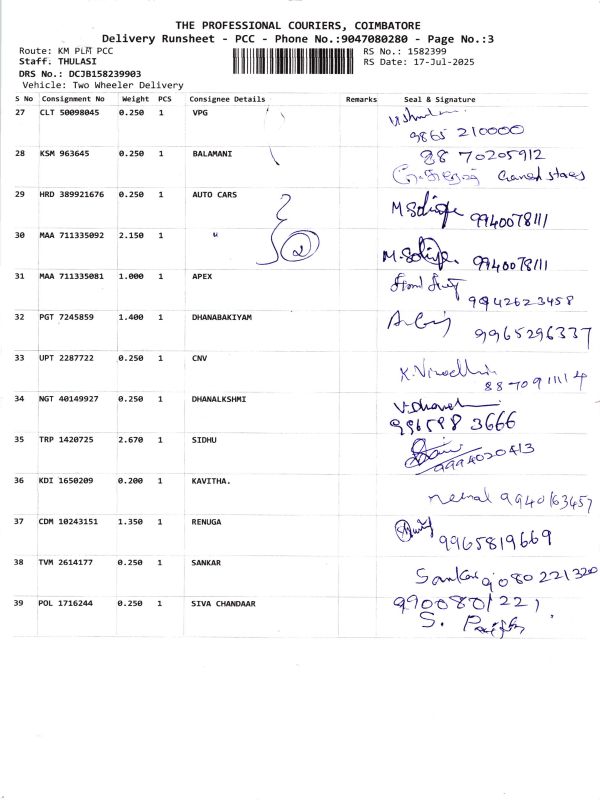 THE PROFESSIONAL COURIERS, COIMBATORE
Delivery Runsheet - PCC - Phone No.:9047080280 - Page No.:3
Route: KM PLM PCC RS No.: 1582399
Staff. THULASI RS Date: 17-Jul-2025
DRS No.: DCJB158239903
Vehicle: Two Wheeler Delivery
S No Consignment No Weight PCS Consignee Details Remarks Seal & Signature
27 CLT 50098045 0.250 1 VPG
9865 210000
28 KSM 963645 0.250 1 BALAMANI 88 70205912
29 HRD 389921676 0.250 1 AUTO CARS 9940078111
30 MAA 711335092 2.150 1 " 2 9940078111
31 MAA 711335081 1.000 1 APEX
9942623458
32 PGT 7245859 1.400 1 DHANABAKIYAM
9965296337
33 UPT 2287722 0.250 1 CNV
8870911114
34 NGT 40149927 0.250 1 DHANALKSHMI
996598 3666
35 TRP 1420725 2.670 1 SIDHU
9994020413
36 KDI 1650209 0.200 1 KAVITHA.
9940163457
37 CDM 10243151 1.350 1 RENUGA
9965819669
38 TVM 2614177 0.250 1 SANKAR
Sankar 9080221320
39 POL 1716244 0.250 1 SIVA CHANDAAR 9900801221
S.